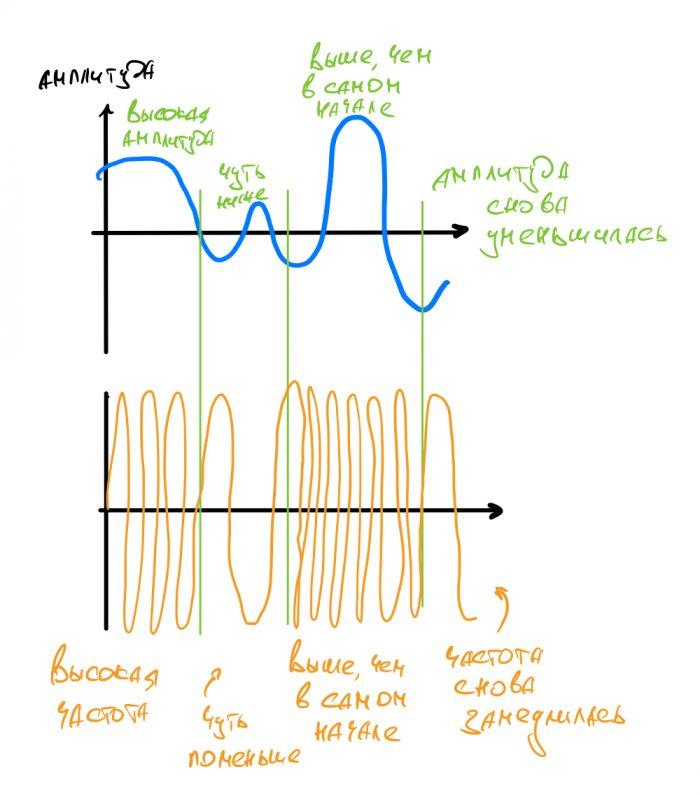 АМПЛИТУДА
ВЫСОКАЯ
АМПЛИТУДА
ЧУТЬ
НИЖЕ
ВЫШЕ, ЧЕМ
В САМОМ
НАЧАЛЕ
АМПЛИТУДА
СНОВА
УМЕНЬШИЛАСЬ
ВЫСОКАЯ
ЧАСТОТА
ЧУТЬ
ПОМЕНЬШЕ
ВЫШЕ, ЧЕМ
В САМОМ
НАЧАЛЕ
ЧАСТОТА
СНОВА
ЗАМЕДЛИЛАСЬ